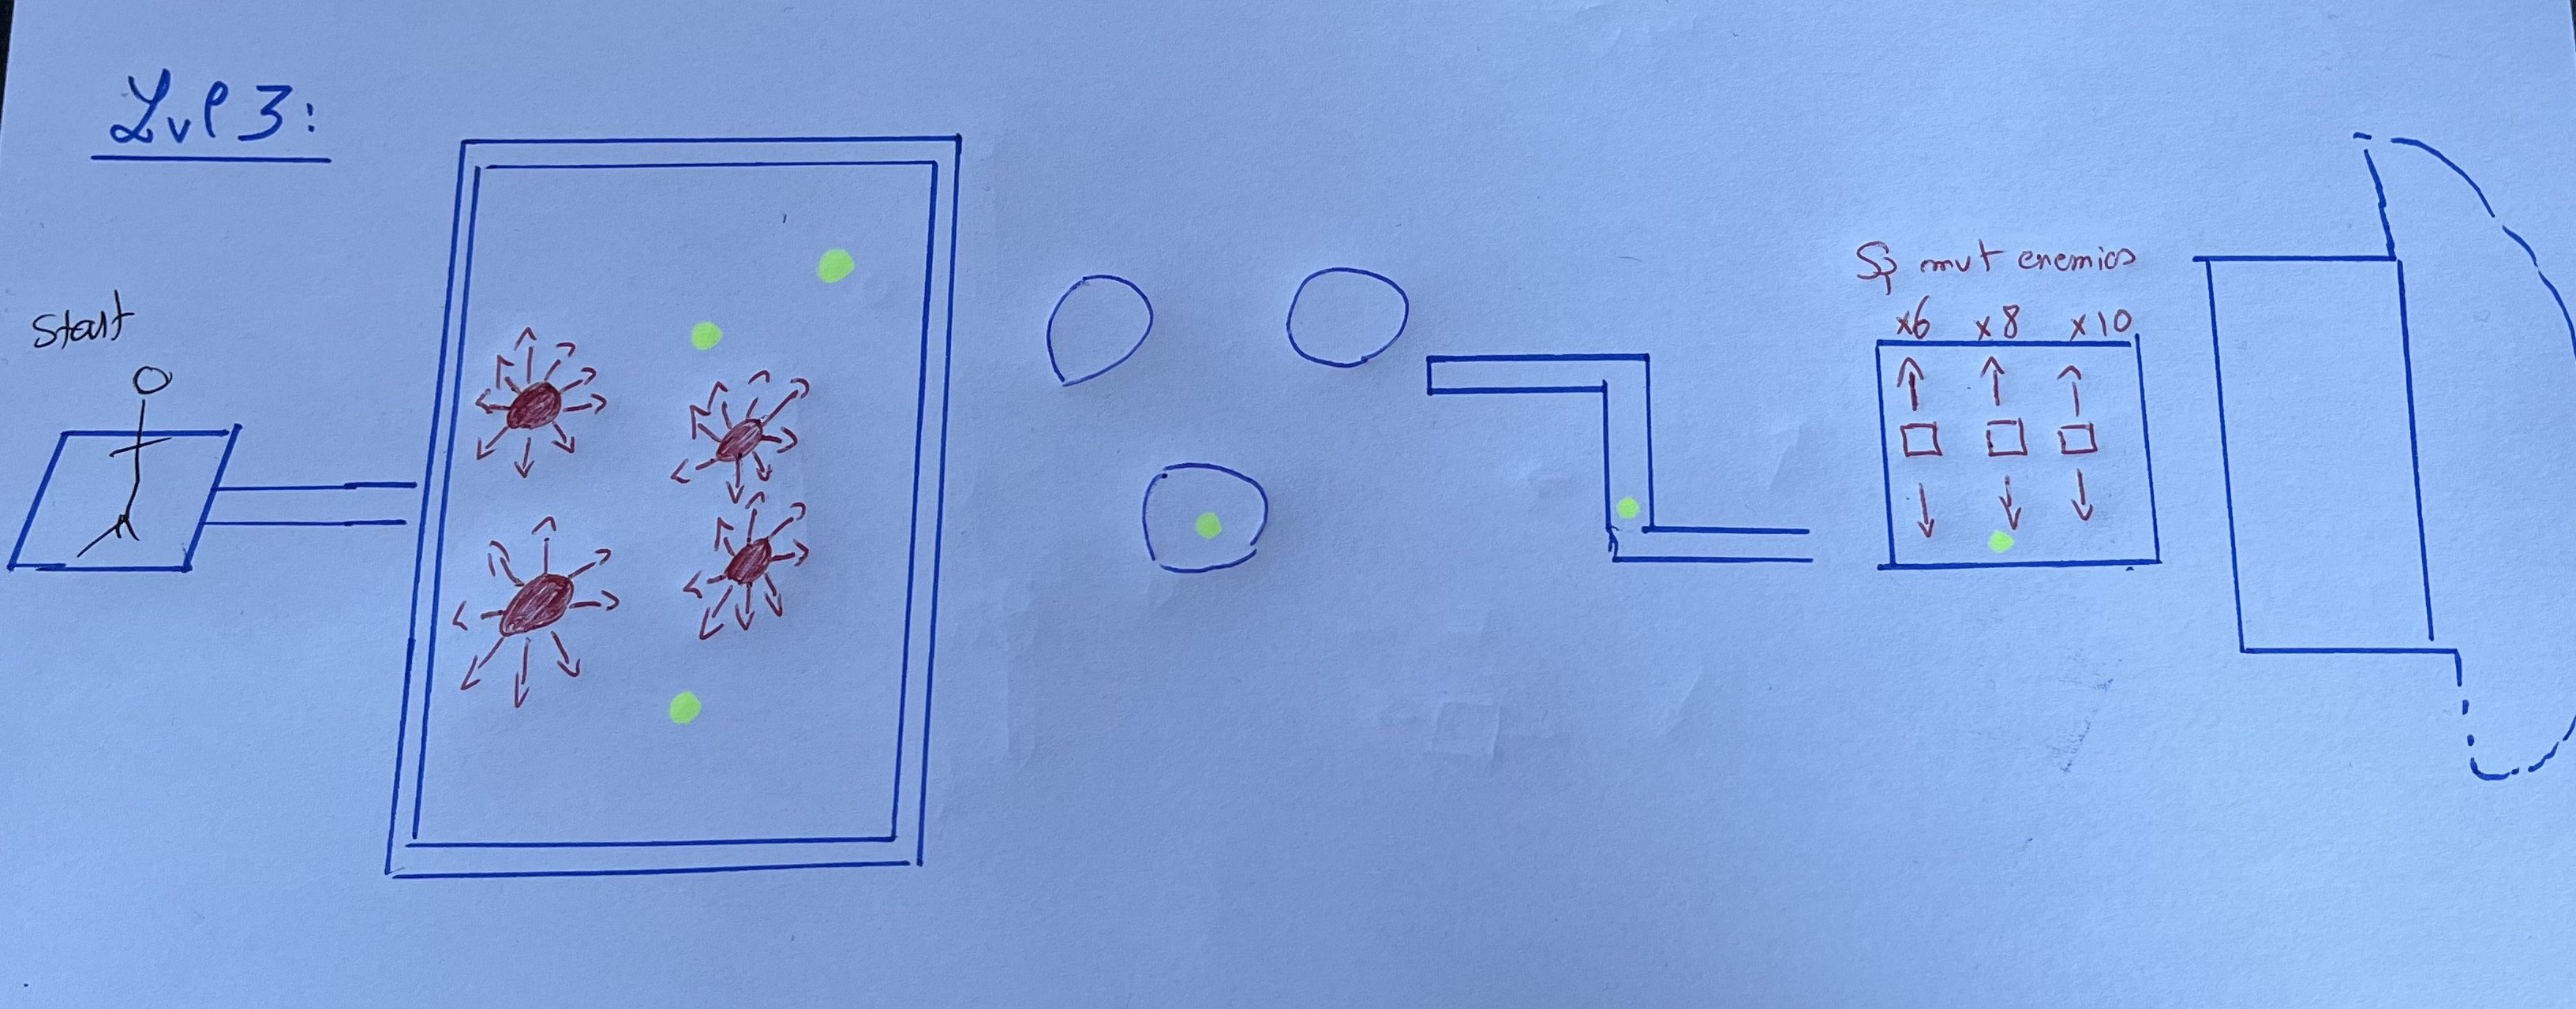 Lvl 3:
Start
mut enemies
x6 x8 x10